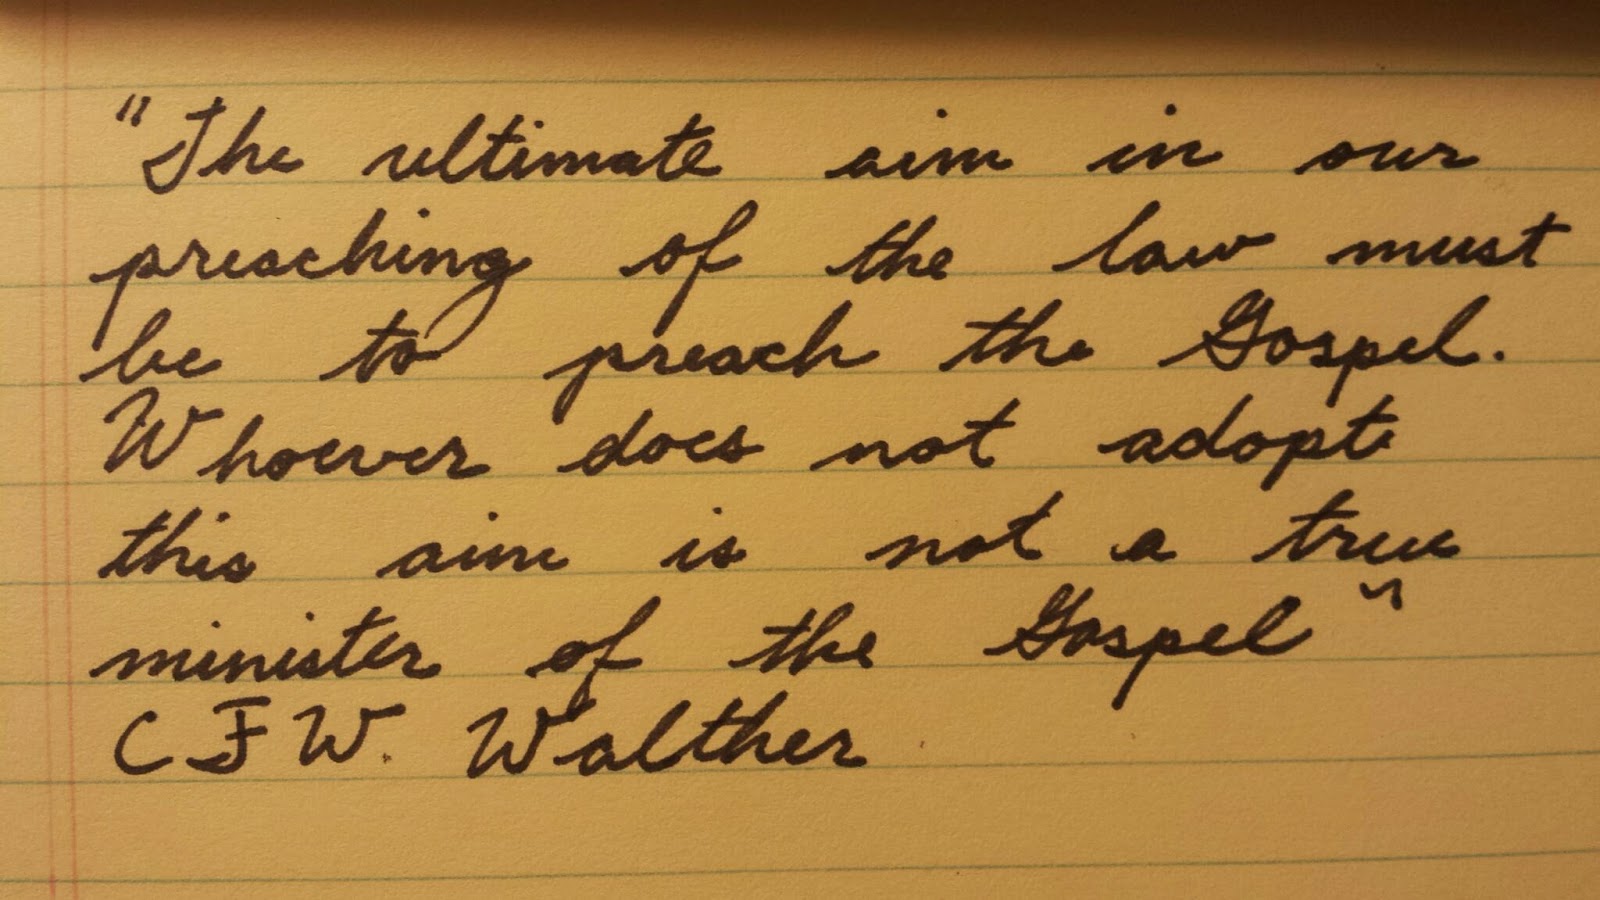 "The ultimate aim in our
preaching of the law must
be to preach the Gospel.
Whoever does not adopt
this aim is not a true
minister of the Gospel"
C F W. Walther